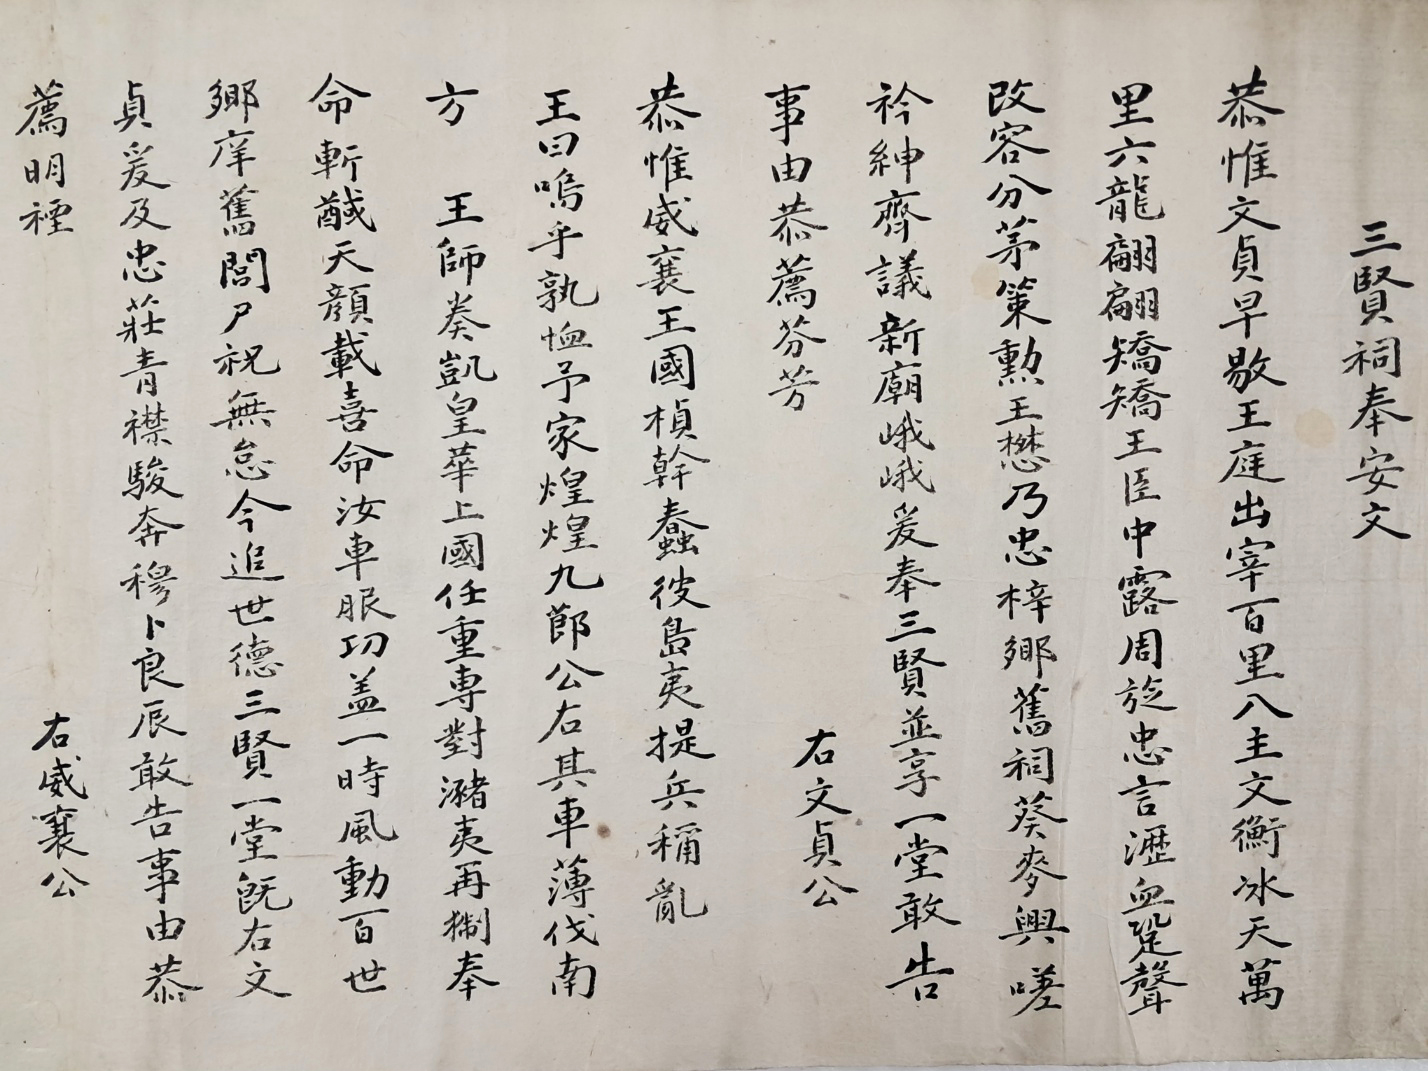 三賢祠奉安文
恭惟文貞早敭王庭出宰百里八主文衡冰天萬
里六龍翩翩矯矯王臣中露周旋忠言瀝血跫聲
改容分茅策勳王懋乃忠梓鄉舊祠葵麥興嗟
衿紳齊議新廟峨峨爰奉三賢並享一堂敢告
事由恭薦芬芳
右文貞公
恭惟威襄王國楨幹蠢彼島夷提兵稱亂
王曰嗚乎孰恤予家煌煌九節公右其車薄伐南
方 王師奏凱皇華上國任重專對瀦夷再猘奉
命斬馘天顏載喜命汝車服功盖一時風動百世
鄉庠舊閭尸祝無怠今追世德三賢一堂旣右文
貞爰及忠莊青襟駿奔穆卜良辰敢告事由恭
薦明禋
右威襄公